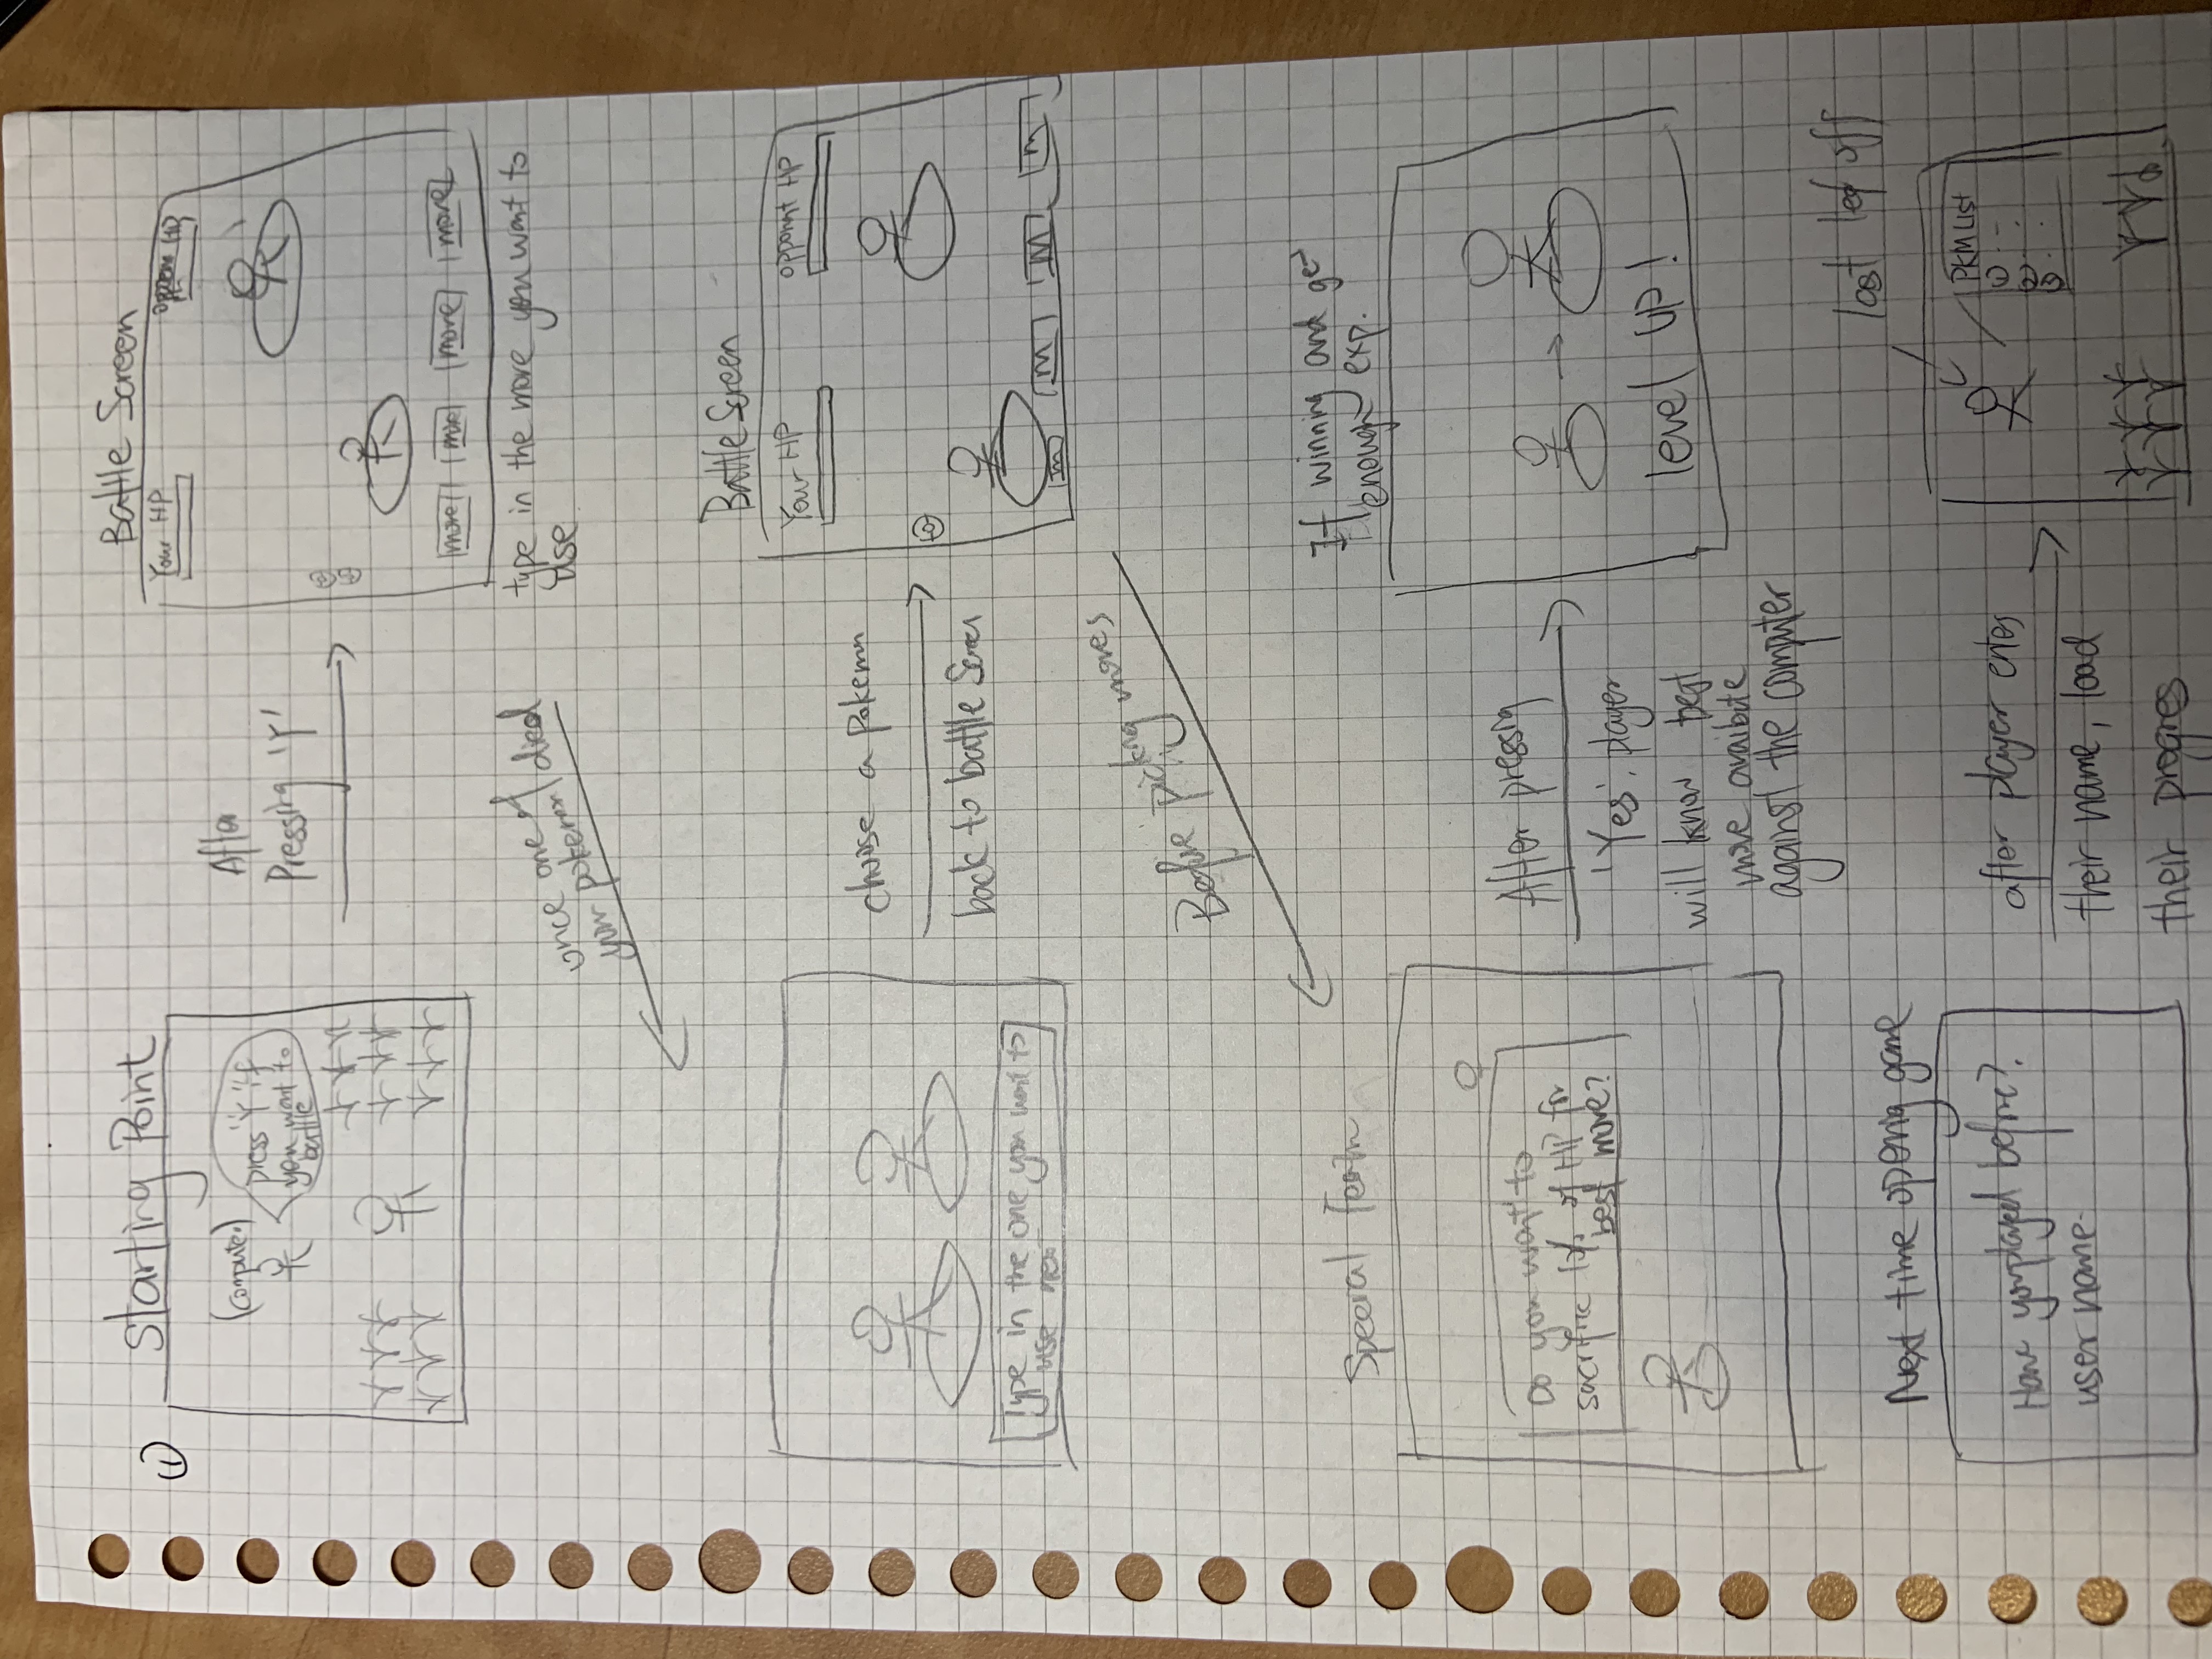 ①
Starting Point
(computer)
press 'Y' if
you want to
battle
After
Pressing 'Y'
Battle Screen
Your HP
opponent HP
move move move move
type in the move you want to
use
once one of
your pokemon died
Type in the one you want to
use next
choose a Pokemn
back to battle Screen
Battle Screen
Your HP
opponent HP
m m m m
Before picking moves
Special
Do you want to
sacrifice 10% of HP for
best move?
After pressig
'Yes', player
will know best
move avaibate
against the computer
If winning and get
enough exp.
level UP!
Next time openig game
Have you played before?
user name
after player entes
their name, load
their progres
last left off
PKM List